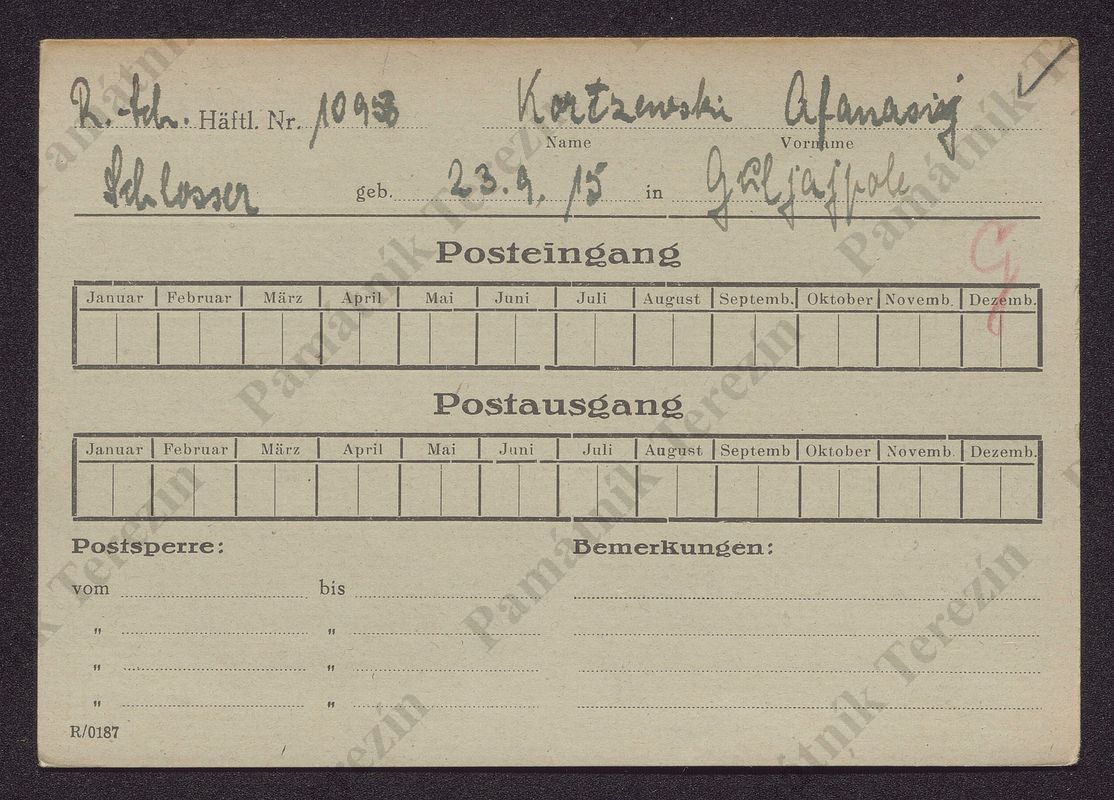 R. Sch. Häftl. Nr. 10958 Kortzewski Afanasij
Name Vorname
Schlosser geb. 23. 9. 15 in Guljajpole
G
Posteingang
Januar Februar März April Mai Juni Juli August Septemb. Oktober Novemb. Dezemb.
Postausgang
Januar Februar März April Mai Juni Juli August Septemb Oktober Novemb. Dezemb.
Postsperre: Bemerkungen:
vom bis
" "
" "
" "
R/0187
Památník Terezín